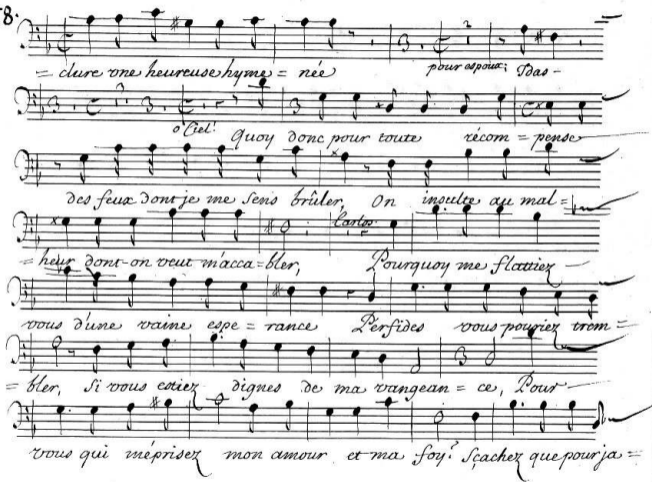 8.
= clure vne heureuse hyme = née pour espoux;
ô Ciel! Quoy donc pour toute récom = pense
des feux dont je me sens brûler, On insulte au mal =
Carlos.
= heur dont on veut m'acca = bler, Pourquoy me flattiez
vous d'une vaine espe = rance Perfides vous pouriez trem =
= bler, Si vous estiez dignes de ma vangean = ce, Pour
vous qui méprisez mon amour et ma foy? Sçachez que pour ja =